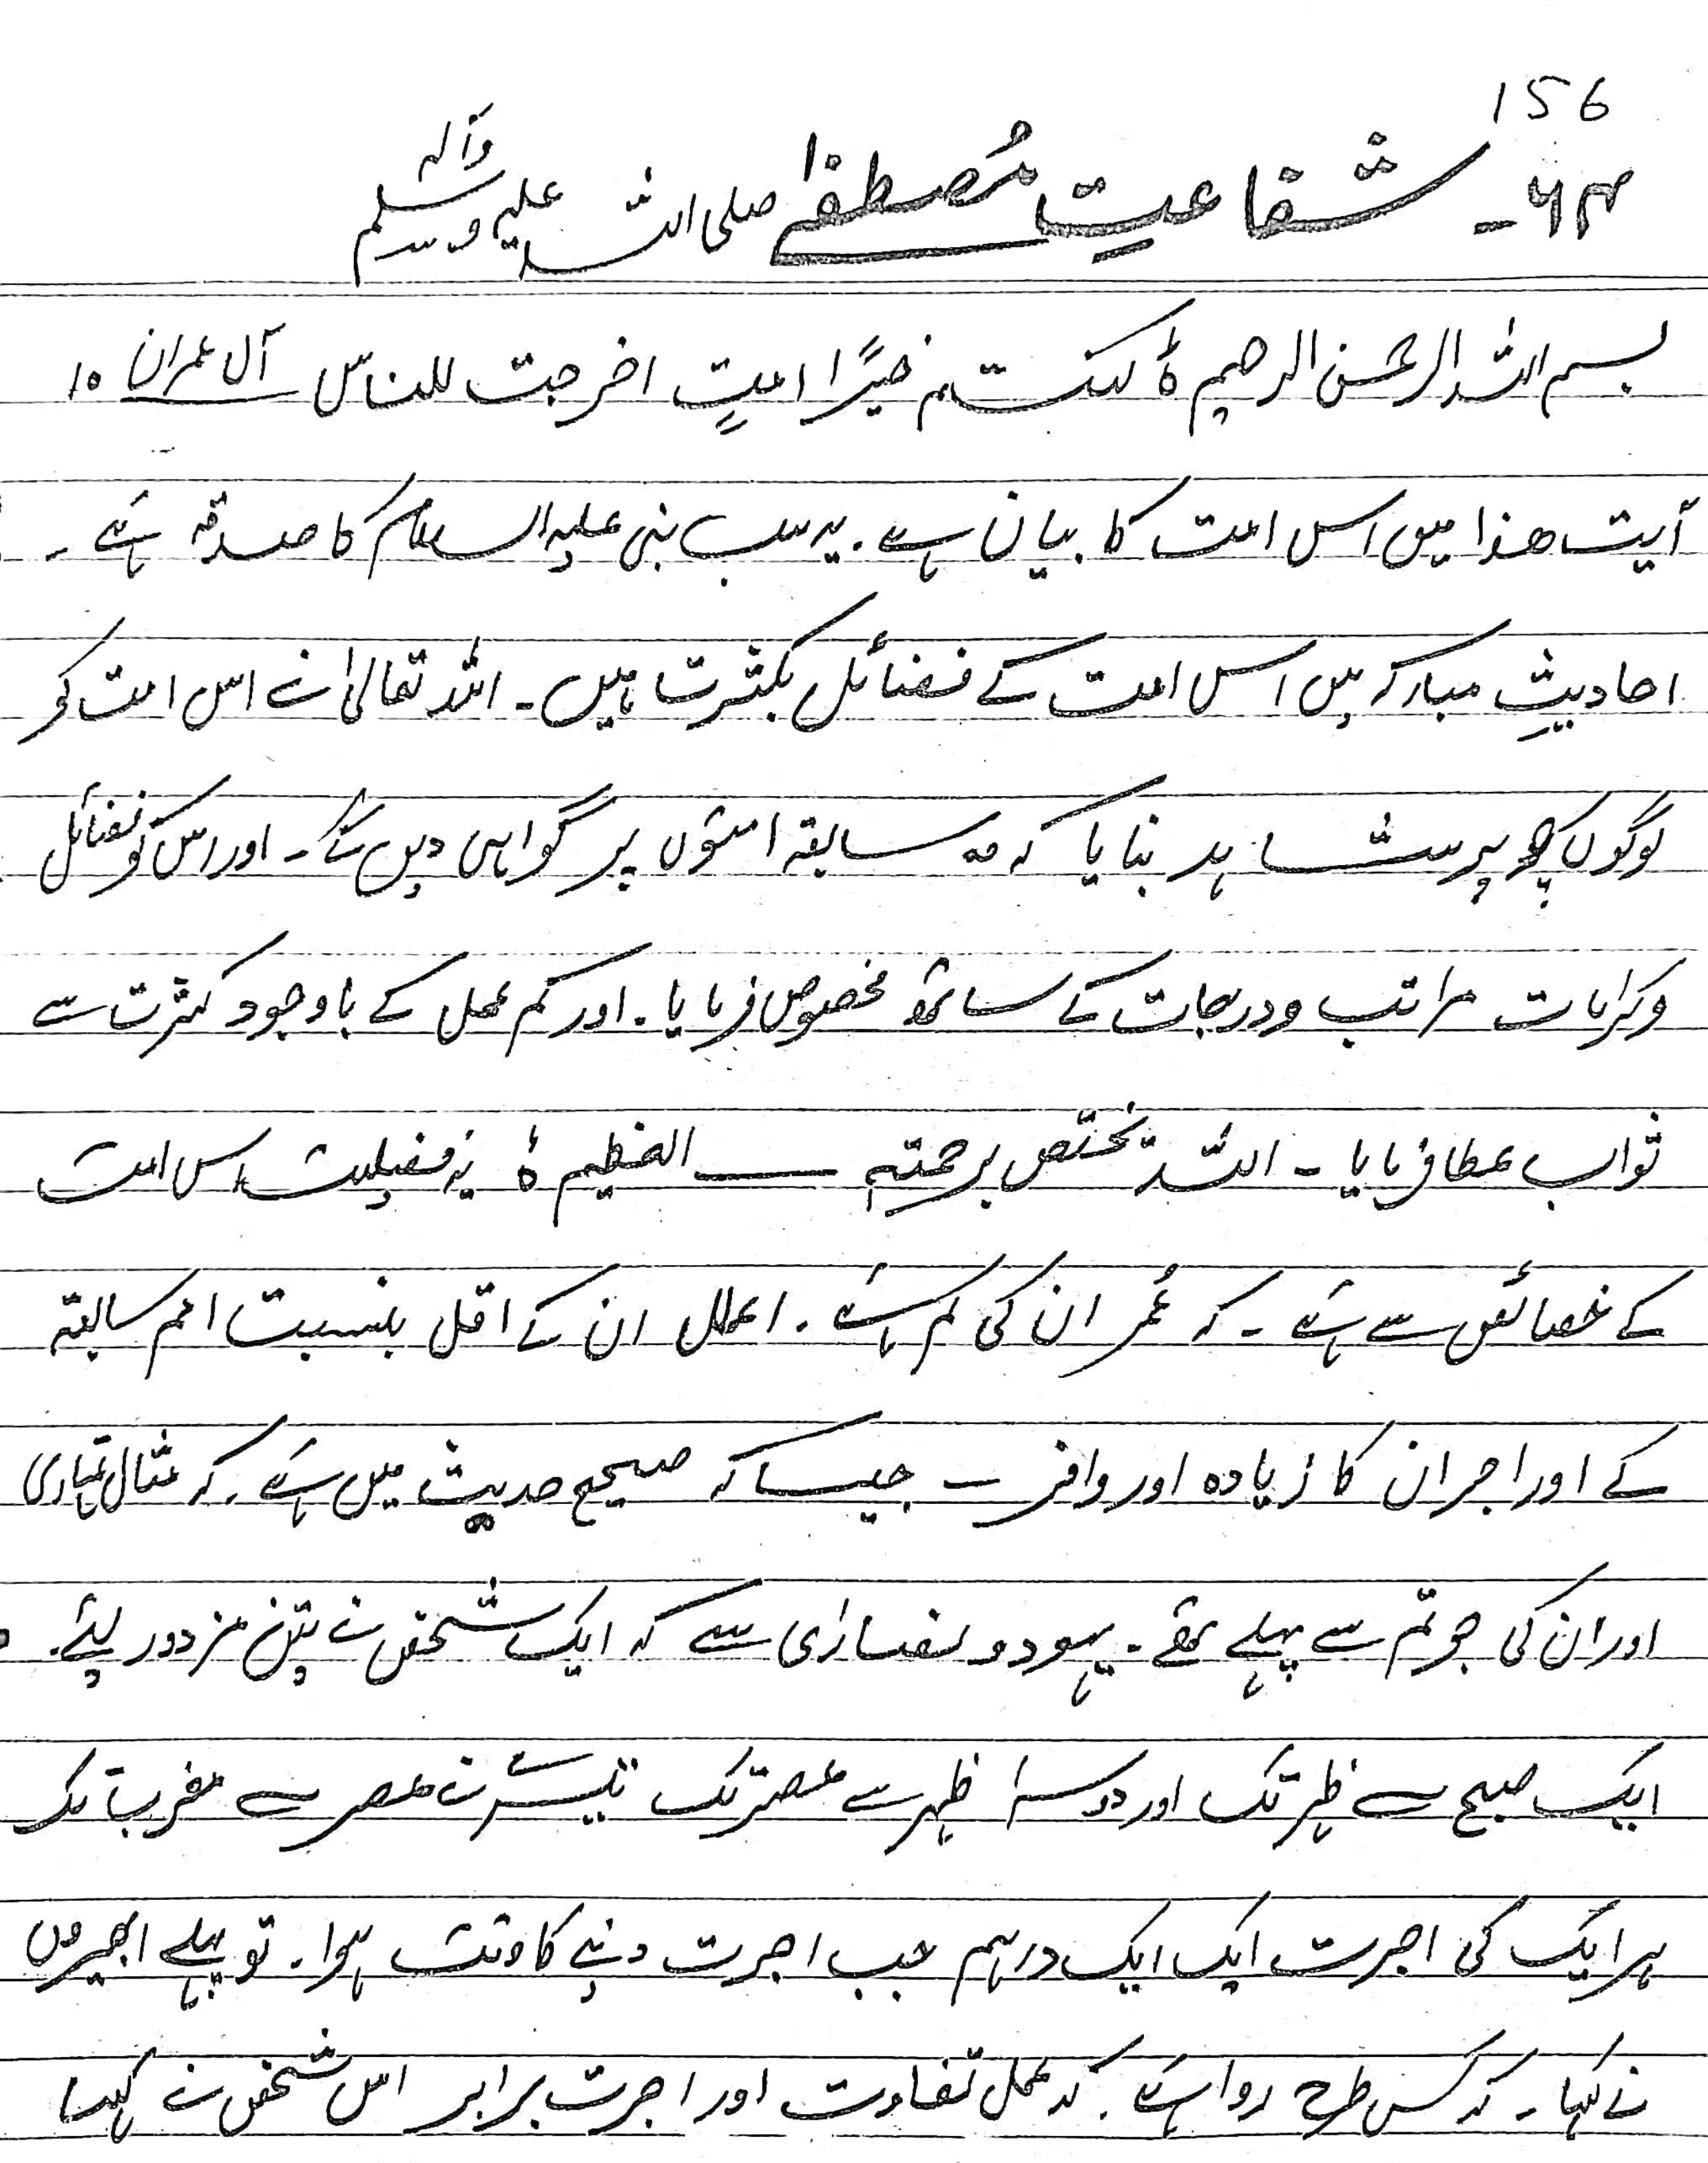 156
۶۴۔ شفاعتِ مُصطفٰے صلی اللہ علیہ وآلہ وسلم
بسم اللہ الرحمن الرحیم ہ کنتم خیرًا امۃٍ اخرجت للناس آل عمران ۱۰
آیت ھذا میں اس امت کا بیان ہے۔ یہ سب نبی علیہ السلام کا صدقہ ہے۔
احادیثِ مبارکہ میں اس امت کے فضائل بکثرت ہیں۔ اللہ تعالیٰ نے اس امت کو
لوگوں پر شاہد بنایا کہ وہ سابقہ امتوں پر گواہی دیں گے۔ اور اس کو فضائل
وکرامات مراتب ودرجات کے ساتھ مخصوص فرمایا۔ اور کم عمل کے باوجود کثرت سے
ثواب عطا فرمایا۔ اللہ یختص برحمتہٖ ـــــ العظیم ہ یہ فضیلت اس امت
کے خصائص سے ہے۔ کہ عُمر ان کی کم ہے۔ اعمال ان کے اقل بنسبت امم سابقہ
کے اور اجر ان کا زیادہ اور وافر۔ جیسا کہ صحیح حدیث میں ہے۔ کہ مثال تمہاری
اور ان کی جو تم سے پہلے تھے۔ یہود و نصاریٰ سے کہ ایک شخص نے تین مزدور لیئے۔
ایک صبح سے ظہر تک اور دوسرا ظہر سے عصر تک تیسرے نے عصر سے مغرب تک
ہر ایک کی اجرت ایک ایک درہم جب اجرت دینے کا وقت ہوا۔ تو پہلے اجیروں
نے کہا۔ کہ کس طرح روا ہے۔ کہ عمل تفاوت اور اجرت برابر اس شخص نے کہا